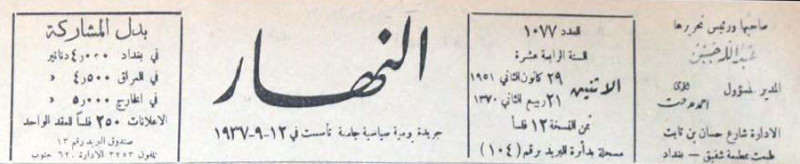 صاحبها ورئيس تحريرها
عبد الله حسين
المدير المسؤول
احمد مدحت
الادارة شارع حسان بن ثابت
طبعت بمطبعة شفيق - بغداد
العدد ١٠٧٧
السنة الرابعة عشرة
الاثنين
٢٩ كانون الثاني ١٩٥١
٢١ ربيع الثاني ١٣٧٠
ثمن النسخة ١٢ فلساً
مسجلة بدأرة البريد برقم (١٠٤)
النهار
جريدة يومية سياسية جامعة تأسست في ١٢-٩-١٩٣٧
بدل المشاركة
في بغداد ٤٫٠٠٠ دنانير
في العراق ٤٫٥٠٠ »
في الخارج ٥٫٠٠٠ »
الاعلانات ٢٥٠ فلساً للعقد الواحد
صندوق البريد رقم ١٣
تلفون ٣٢٥٣ الادارة ٦٢٠ جنوب